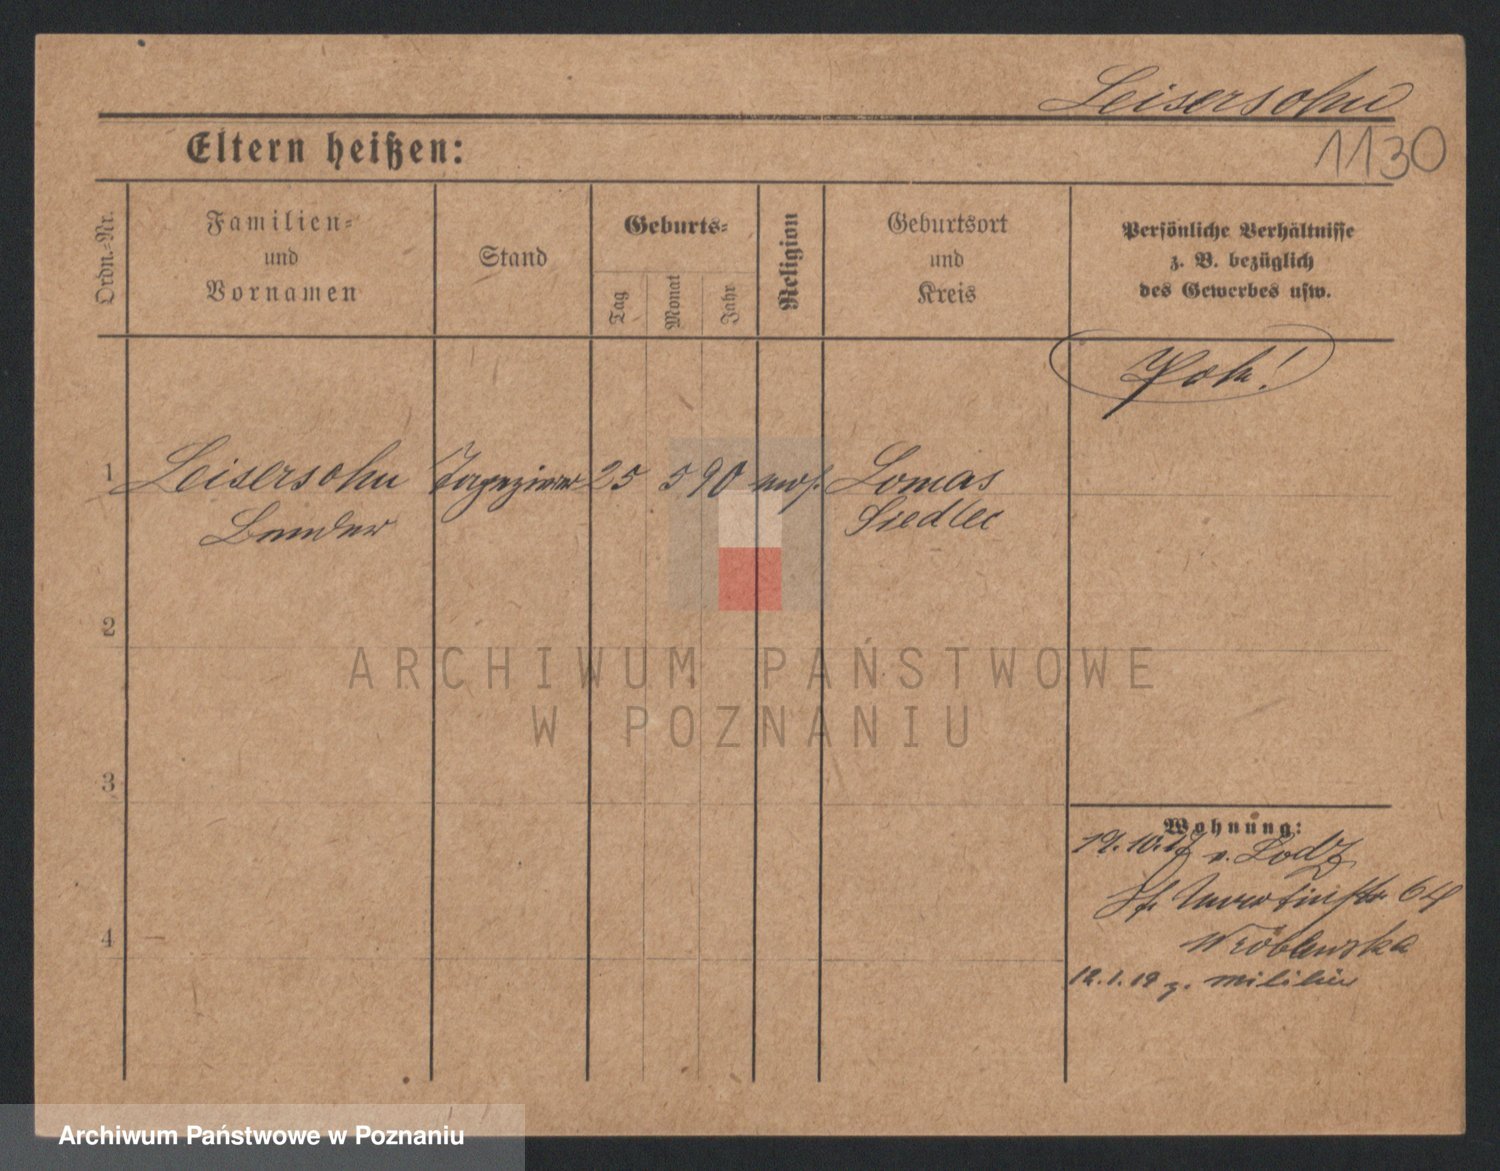 Leisersohn
1130
Eltern heißen:
Ordn.-Nr.
Familien-
und
Vornamen
Stand
Geburts-
Tag
Monat
Jahr
Religion
Geburtsort
und
Kreis
Persönliche Verhältnisse
z. B. bezüglich
des Gewerbes usw.
1
Leisersohn
Bender
Tapezierer
25
5
90
mos.
Lomas
Siedlec
2
3
4
Wohnung:
v. Lodz
64
Wróblewska
12.1.19 z. Militär
ARCHIWUM PAŃSTWOWE
W POZNANIU
Archiwum Państwowe w Poznaniu